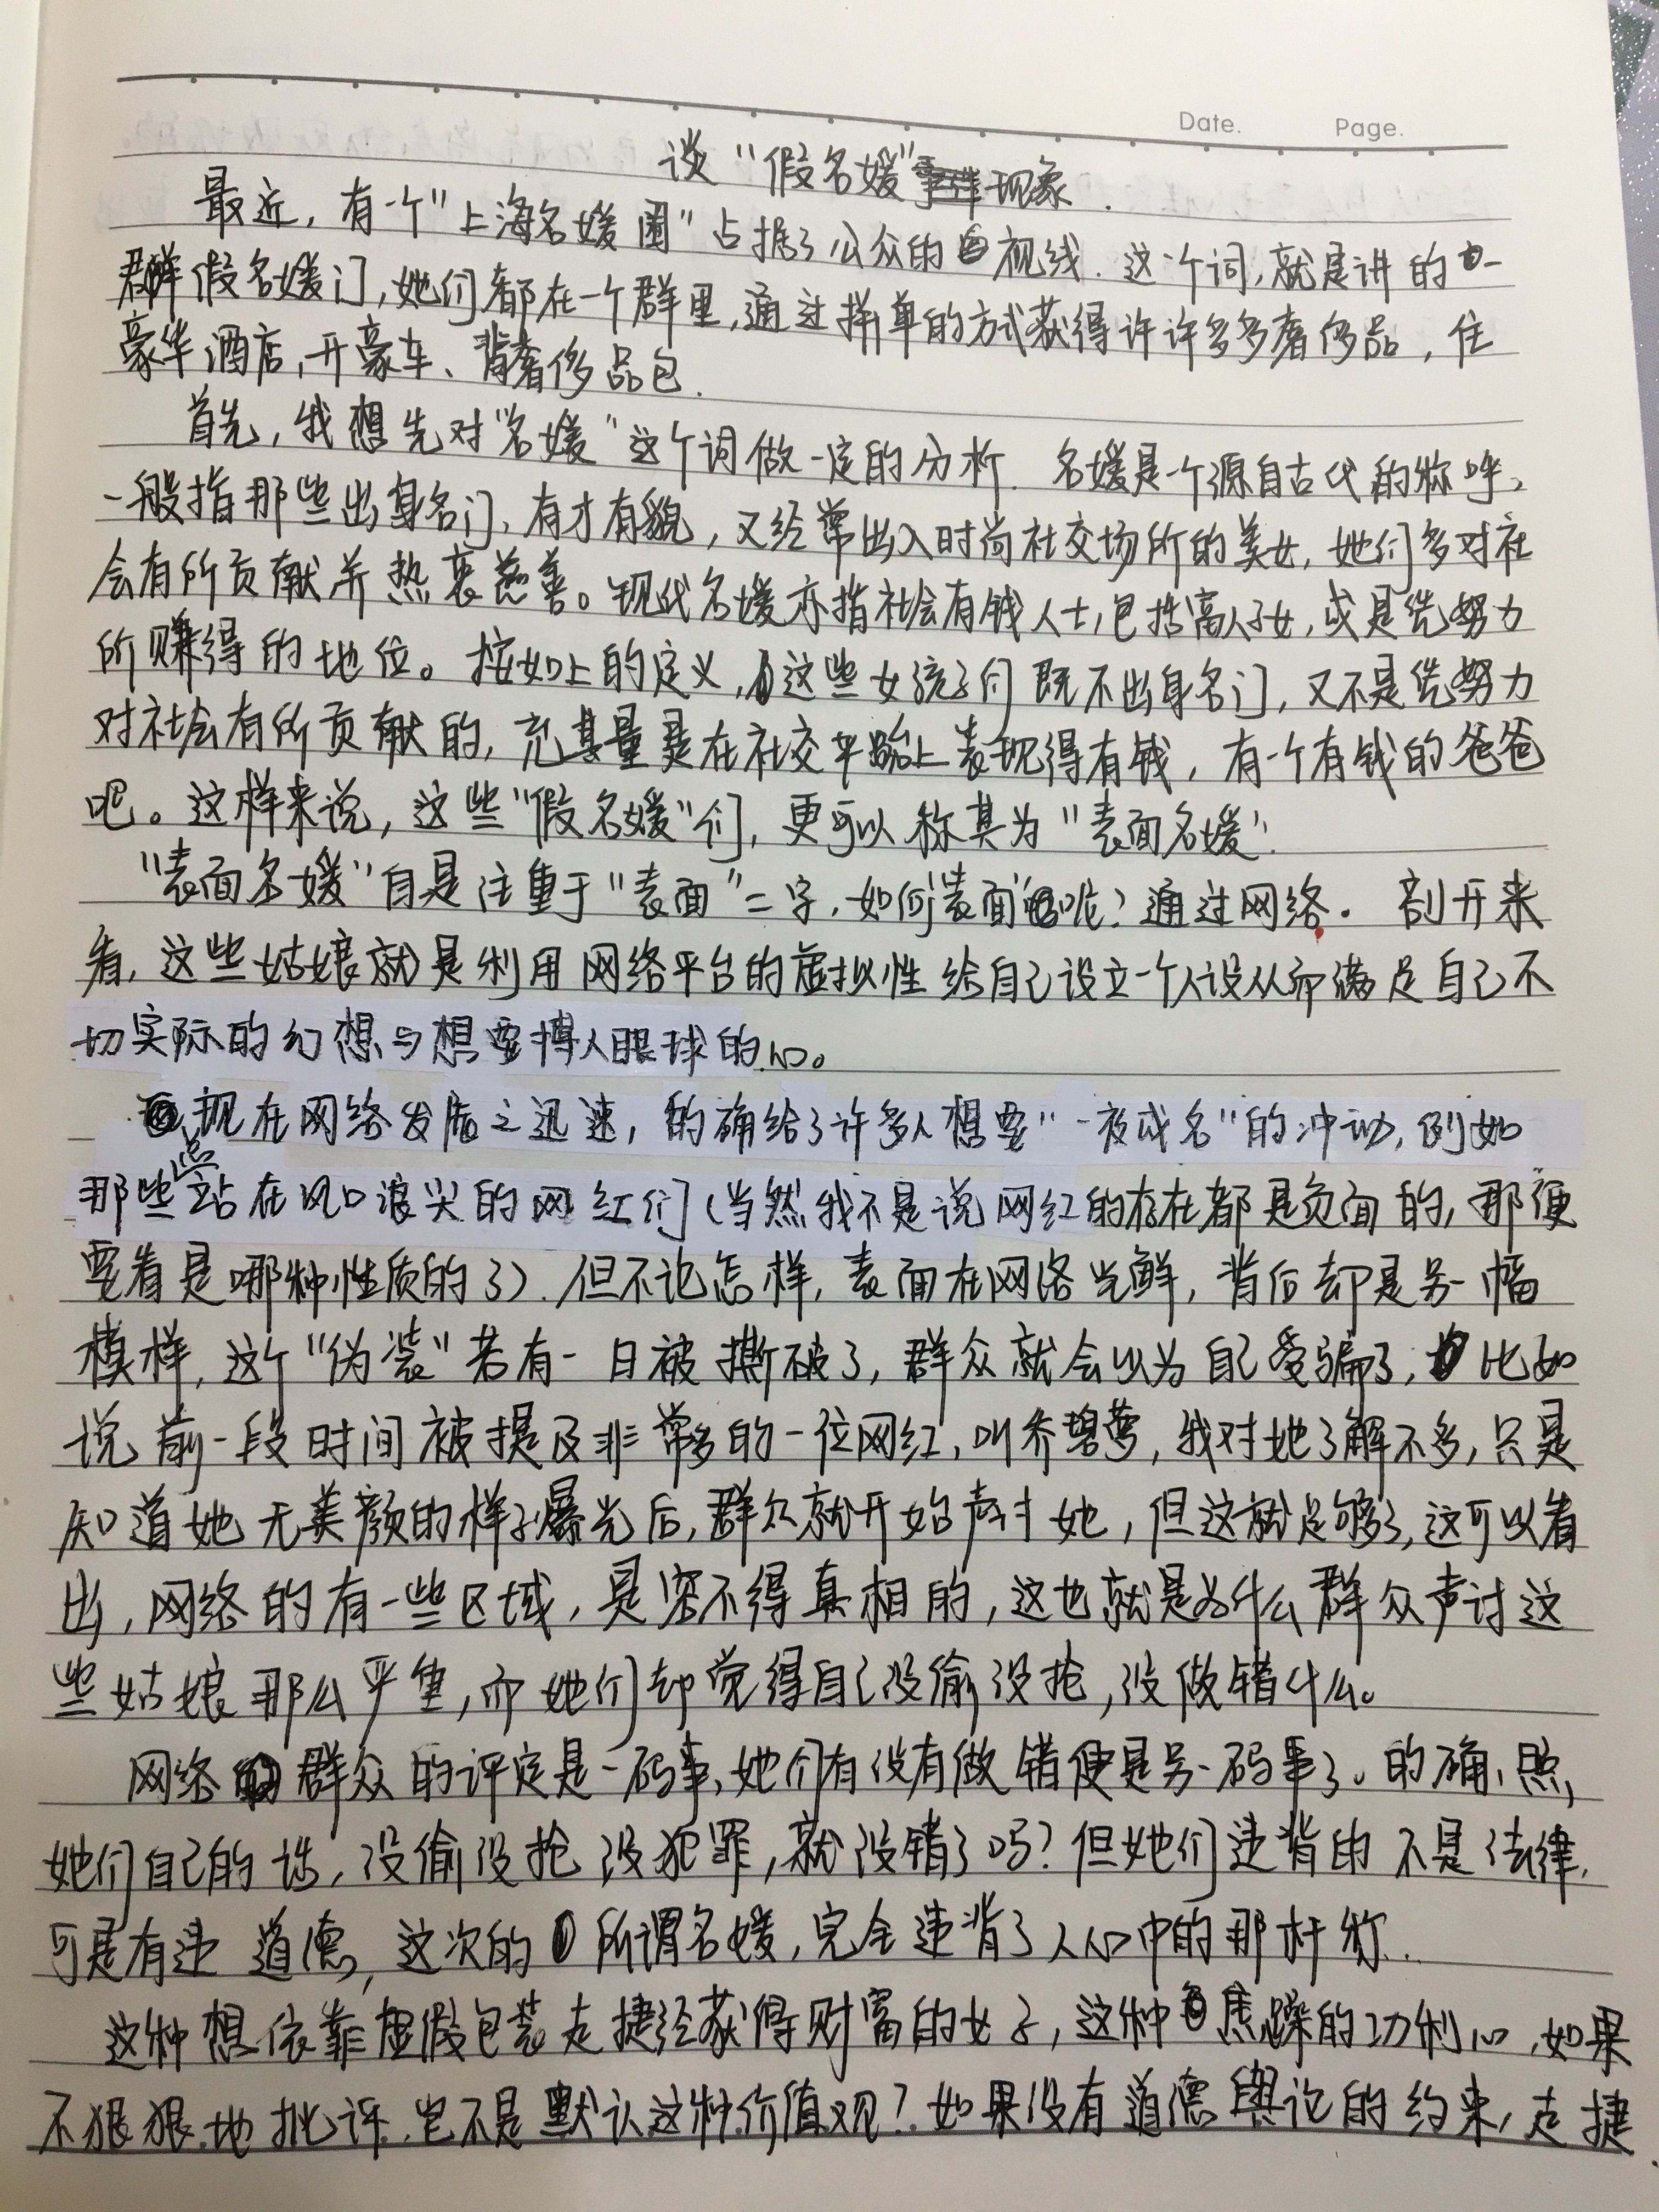 Date. Page.
谈“假名媛”现象.
最近，有一个“上海名媛圈”占据了公众的视线.这个词,就是讲的一
群假名媛门,她们都在一个群里,通过拼单的方式获得许许多多奢侈品，住
豪华酒店,开豪车、背奢侈品包.
首先,我想先对“名媛”这个词做一定的分析.名媛是一个源自古代的称呼,
一般指那些出身名门、有才有貌，又经常出入时尚社交场所的美女,她们多对社
会有所贡献并热衷慈善。现代名媛亦指社会有钱人士,包括富人子女,或是凭努力
所赚得的地位。按如上的定义,这些女孩子们既不出身名门,又不是凭努力
对社会有所贡献的,充其量是在社交平台上表现得有钱，有一个有钱的爸爸
吧。这样来说，这些“假名媛”们,更可以称其为“表面名媛”.
“表面名媛”自是注重于“表面”二字,如何“表面”呢?通过网络.剖开来
看,这些姑娘就是利用网络平台的虚拟性给自己设立一个人设从而满足自己不
切实际的幻想与想要博人眼球的心。
现在网络发展之迅速，的确给了许多人想要“一夜成名”的冲动,例如
那些站在风口浪尖的网红们(当然我不是说网红的存在都是负面的,那便
要看是哪种性质的了).但不论怎样,表面在网络光鲜，背后却是另一幅
模样,这个“伪装”若有一日被撕破了,群众就会以为自己受骗了,比如
说前一段时间被提及非常多的一位网红,叫乔碧萝,我对她了解不多,只是
知道她无美颜的样子爆光后,群众就开始声讨她，但这就足够了,这可以看
出,网络的有一些区域，是容不得真相的,这也就是为什么群众声讨这
些姑娘那么严重,而她们却觉得自己没偷没抢,没做错什么。
网络群众的评定是一码事,她们有没有做错便是另一码事了。的确,照
她们自己的话,没偷没抢没犯罪,就没错了吗?但她们违背的不是法律,
可是有违道德,这次的所谓名媛,完全违背了人心中的那杆称.
这种想依靠虚假包装走捷径获得财富的女子,这种焦躁的功利心,如果
不狠狠地批评,岂不是默认这种价值观?如果没有道德舆论的约束,走捷